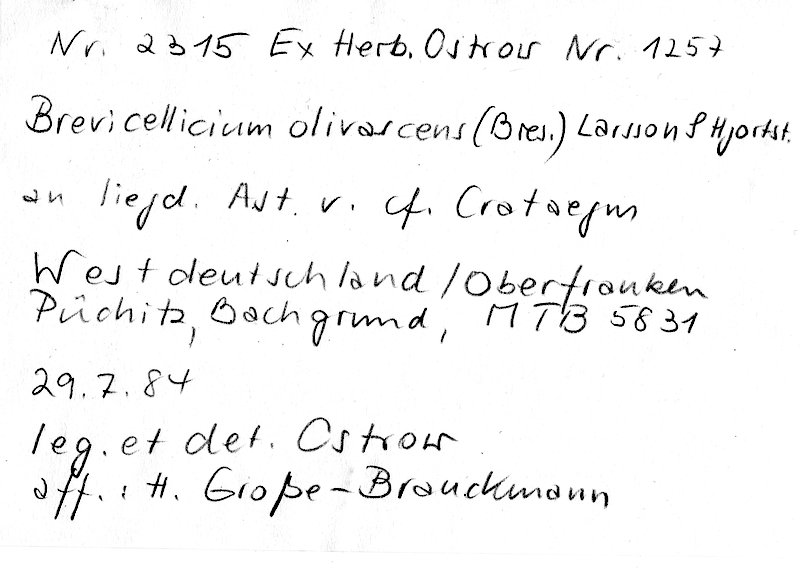 Nr. 2315 Ex Herb. Ostrow Nr. 1257
Brevicellicium olivascens (Bres.) Larsson & Hjortst.
an liegd. Ast. v. cf. Crataegus
Westdeutschland/Oberfranken
Püchitz, Bachgrund, MTB 5831
29.7.84
leg. et det. Ostrow
aff.: H. Große-Brauckmann